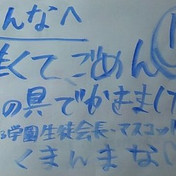 んなへ
くてごめん
の具でかきまし
学園生徒会長・マスコッ
くまんまな